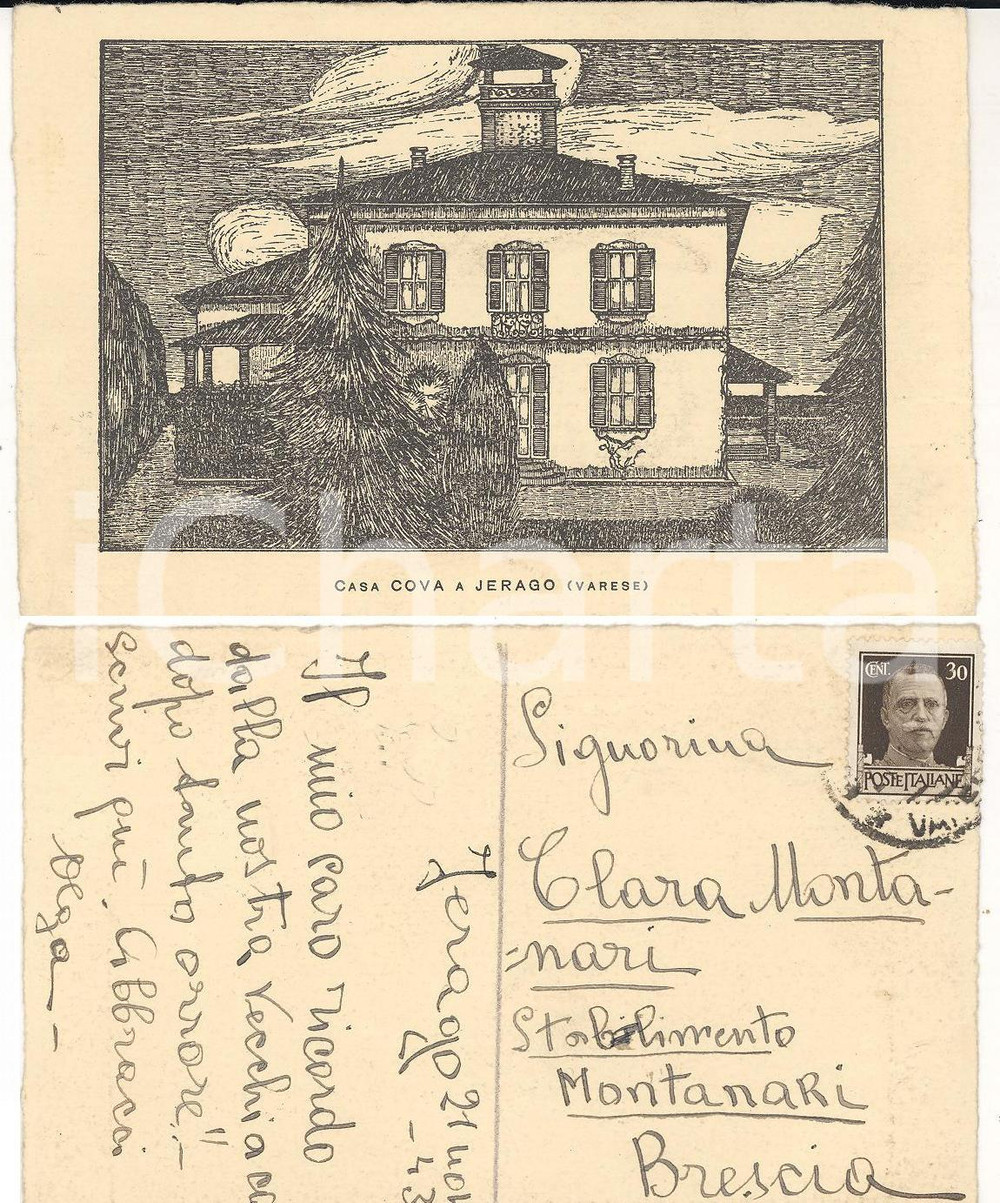 CASA COVA A JERAGO (VARESE)
iCharta
CENT. 30
POSTE ITALIANE
Signorina
Clara Monta-
-nari
Stabilimento
Montanari
Brescia
Jerago 21 nov
-43
Il mio caro ricordo
dalla nostra vecchia ca
dopo tanto orrore! -
scrivi qui. Abbracci
Olga -